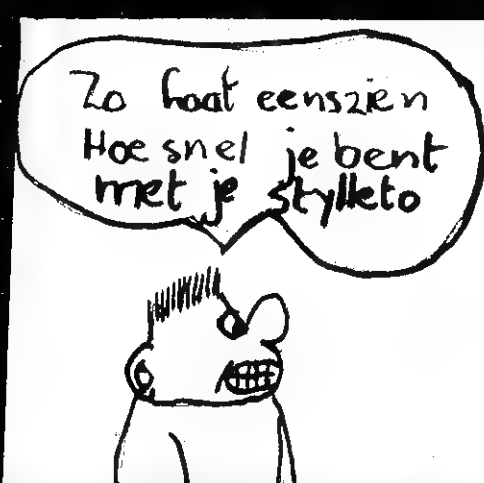 Zo haat eens zien
Hoe snel je bent
met je stylleto